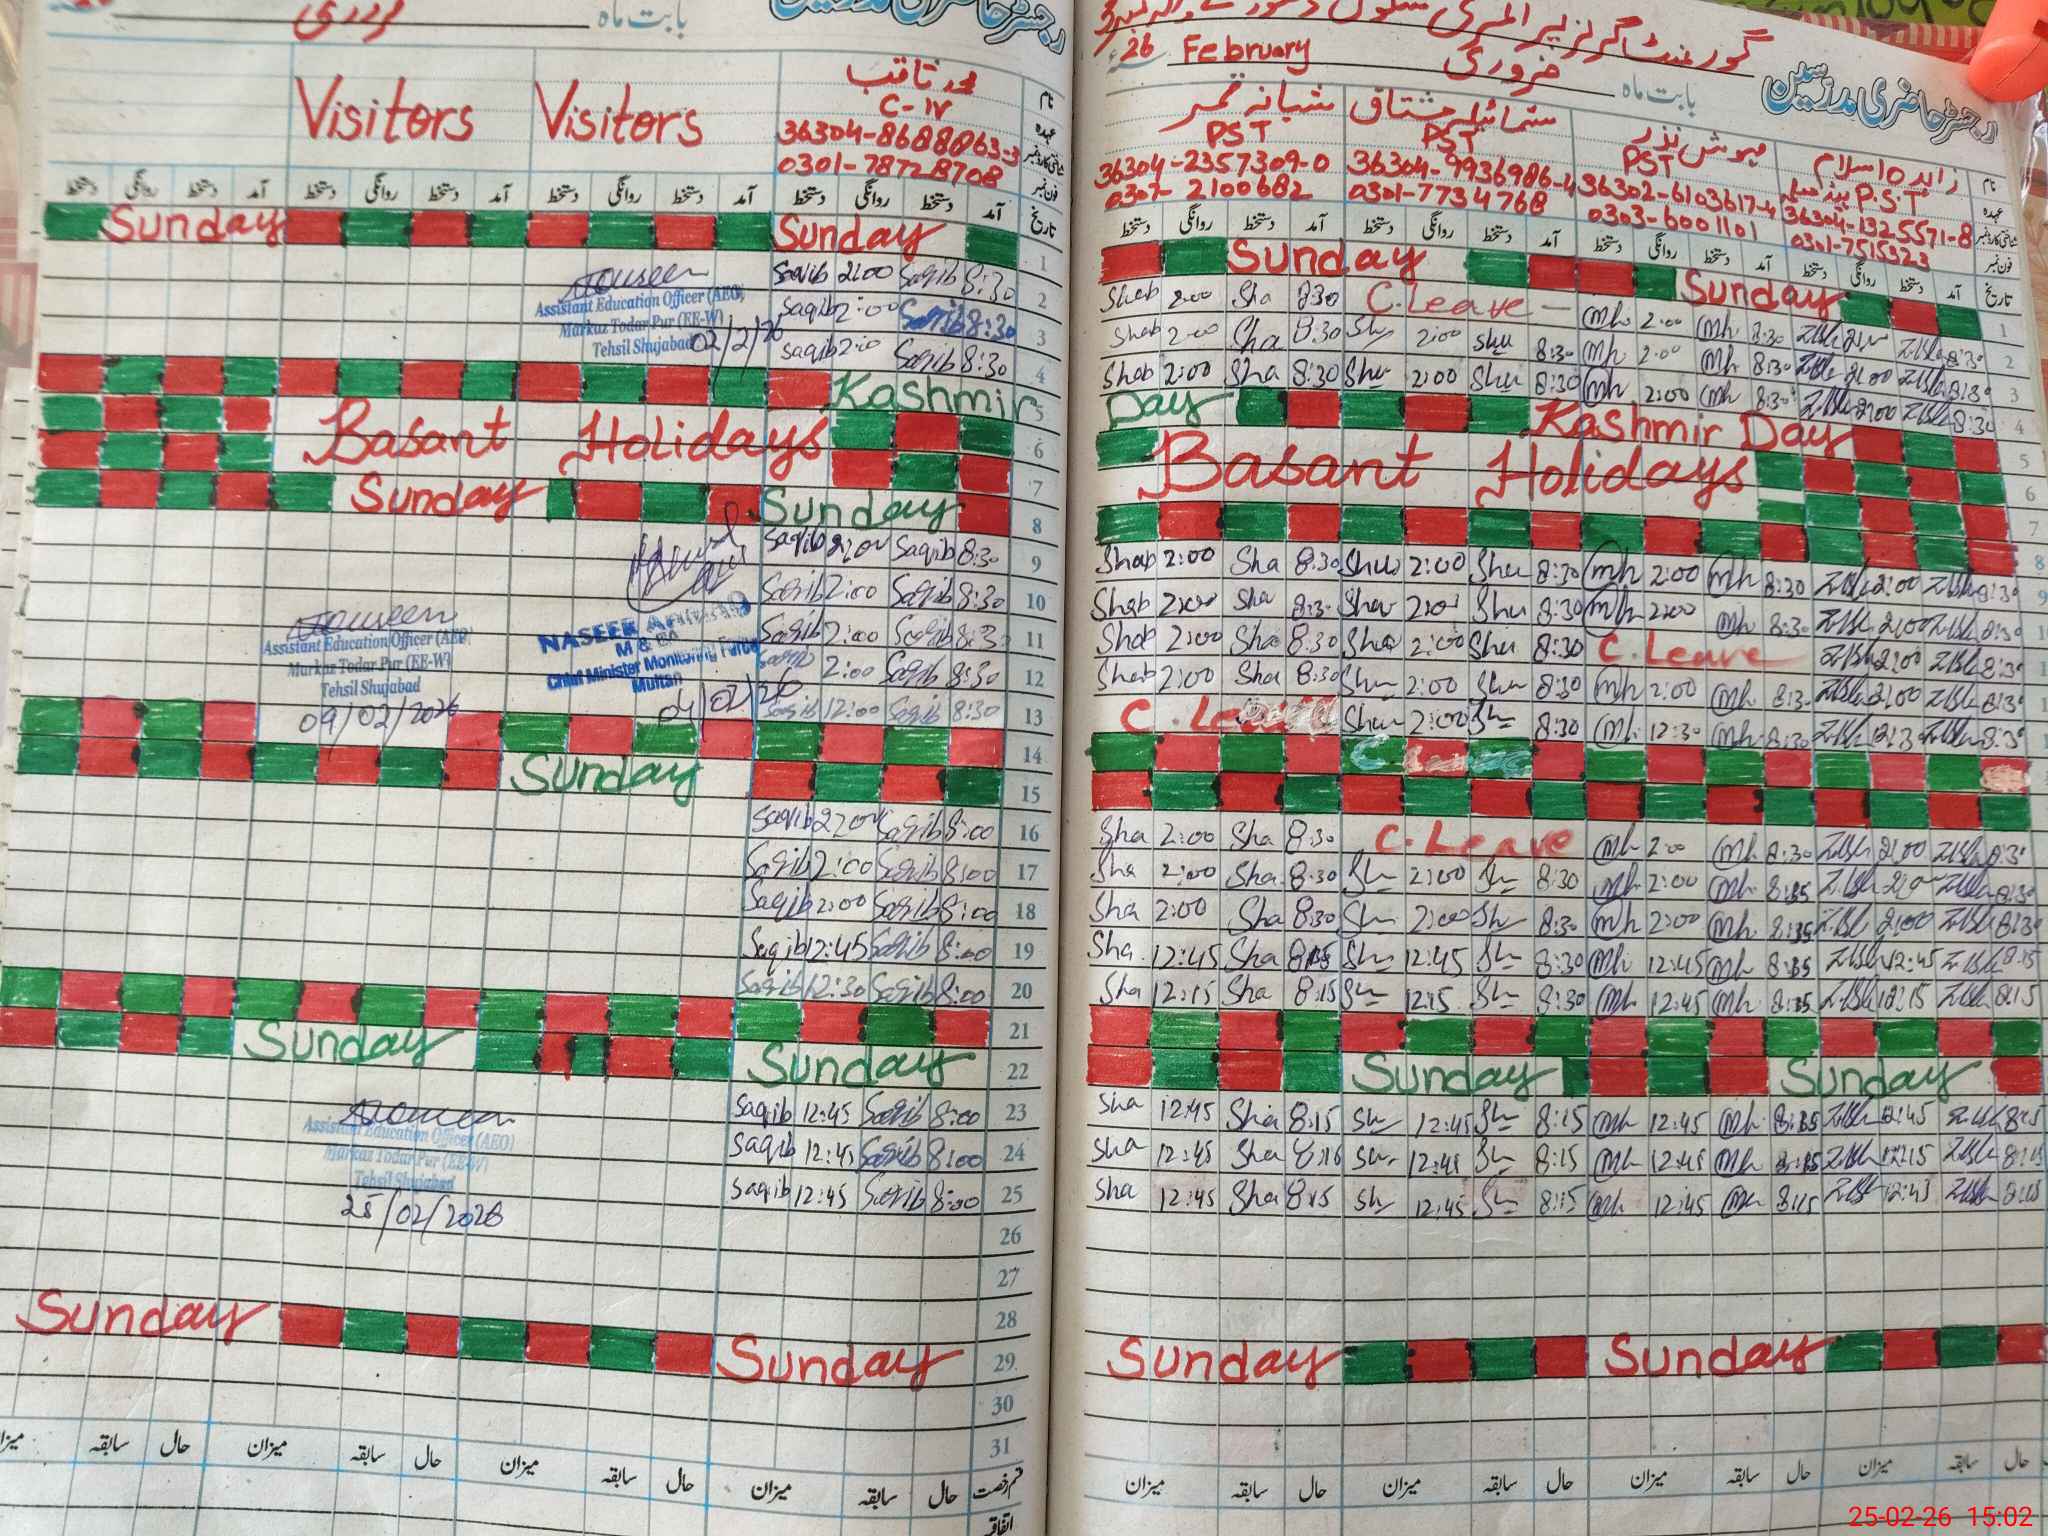 رجسٹر حاضری مدرسین
بابت ماہ
Visitors
Visitors
محمد ثاقب
C-IV
36304-8688863-3
0301-78728708
نام
عہدہ
شناختی کارڈ نمبر
فون نمبر
دستخط روانگی دستخط آمد دستخط روانگی دستخط آمد دستخط روانگی دستخط آمد تاریخ
Sunday Sunday 1
Saqib 2:00 Saqib 8:30 2
Assistant Education Officer (AEO)
Markaz Todar Pur (EE-W)
Tehsil Shujabad
02/2/26
Saqib 2:00 Saqib 8:30 3
Saqib 2:00 Saqib 8:30 4
Kashmir 5
Basant Holidays 6
7
Sunday Sunday 8
Saqib 2:00 Saqib 8:30 9
Saqib 2:00 Saqib 8:30 10
Saqib 2:00 Saqib 8:30 11
2:00 Saqib 8:30 12
Saqib 12:00 Saqib 8:30 13
Assistant Education Officer (AEO)
Markaz Todar Pur (EE-W)
Tehsil Shujabad
09/02/2026
NASEER AHMED
Chief Minister Monitoring Force
Multan
14
Sunday 15
Saqib 2:00 Saqib 8:00 16
Saqib 2:00 Saqib 8:00 17
Saqib 2:00 Saqib 8:00 18
Saqib 12:45 Saqib 8:00 19
Saqib 12:30 Saqib 8:00 20
21
Sunday Sunday 22
Saqib 12:45 Saqib 8:00 23
Saqib 12:45 Saqib 8:00 24
Saqib 12:45 Saqib 8:00 25
Assistant Education Officer (AEO)
Markaz Todar Pur (EE-W)
Tehsil Shujabad
25/02/2026
26
27
28
Sunday Sunday 29
30
31
میزان سابقہ حال میزان سابقہ حال میزان سابقہ حال میزان سابقہ حال قسم رخصت
اتفاقیہ
رجسٹر حاضری مدرسین
26 February
بابت ماہ فروری
شبانہ قمر
PST
36304-2357309-0
0307-2100682
شمائلہ مشتاق
PST
36304-9936986-4
0301-7734768
مہوش نذر
PST
36302-6103617-4
0303-6001101
زاہدہ اسلام
P.S.T
36304-1325571-8
0301-7515323
نام
عہدہ
شناختی کارڈ نمبر
فون نمبر
دستخط روانگی دستخط آمد دستخط روانگی دستخط آمد دستخط روانگی دستخط آمد دستخط روانگی دستخط آمد تاریخ
Sunday Sunday 1
Shab 2:00 Sha 8:30 C.Leave Mh 2:00 Mh 8:30 2
Shab 2:00 Sha 8:30 Shu 2:00 Shu 8:30 Mh 2:00 Mh 8:30 3
Shab 2:00 Sha 8:30 Shu 2:00 Shu 8:30 Mh 2:00 Mh 8:30 2:00 8:30 4
Day Kashmir Day 5
Basant Holidays 6
7
8
Shab 2:00 Sha 8:30 Shu 2:00 Shu 8:30 Mh 2:00 Mh 8:30 2:00 8:30 9
Shab 2:00 Sha 8:30 Shu 2:00 Shu 8:30 Mh 2:00 Mh 8:30 2:00 8:30
Shab 2:00 Sha 8:30 Shu 2:00 Shu 8:30 C.Leave 2:00 8:30
Shab 2:00 Sha 8:30 Shu 2:00 Shu 8:30 Mh 2:00 Mh 8:30 2:00 8:30
C.Leave Shu 2:00 Shu 8:30 Mh 12:30 Mh 8:30 12:30 8:30
C Leave
Sha 2:00 Sha 8:30 C.Leave Mh 2:00 Mh 8:30 2:00 8:30
Sha 2:00 Sha 8:30 Sh 2:00 Sh 8:30 Mh 2:00 Mh 8:35 8:30
Sha 2:00 Sha 8:30 Sh 2:00 Sh 8:30 Mh 2:00 Mh 8:35 2:00 8:30
Sha 12:45 Sha Sh 12:45 Sh 8:30 Mh 12:45 Mh 8:35 12:45 8:15
Sha 12:15 Sha 8:15 Sh 12:15 Sh 8:30 Mh 12:45 Mh 8:35 12:15 8:15
Sunday Sunday
Sha 12:45 Sha 8:15 Sh 12:45 Sh 8:15 Mh 12:45 Mh 12:45 8:15
Sha 12:45 Sha 8:16 Sh 12:45 Sh 8:15 Mh 12:45 Mh 12:15 8:15
Sha 12:45 Sha 8:15 Sh 12:45 Sh 8:15 Mh 12:45 Mh 8:15 12:45 8:15
Sunday Sunday
میزان سابقہ حال میزان سابقہ حال میزان سابقہ حال میزان سابقہ حال
25-02-26 15:02